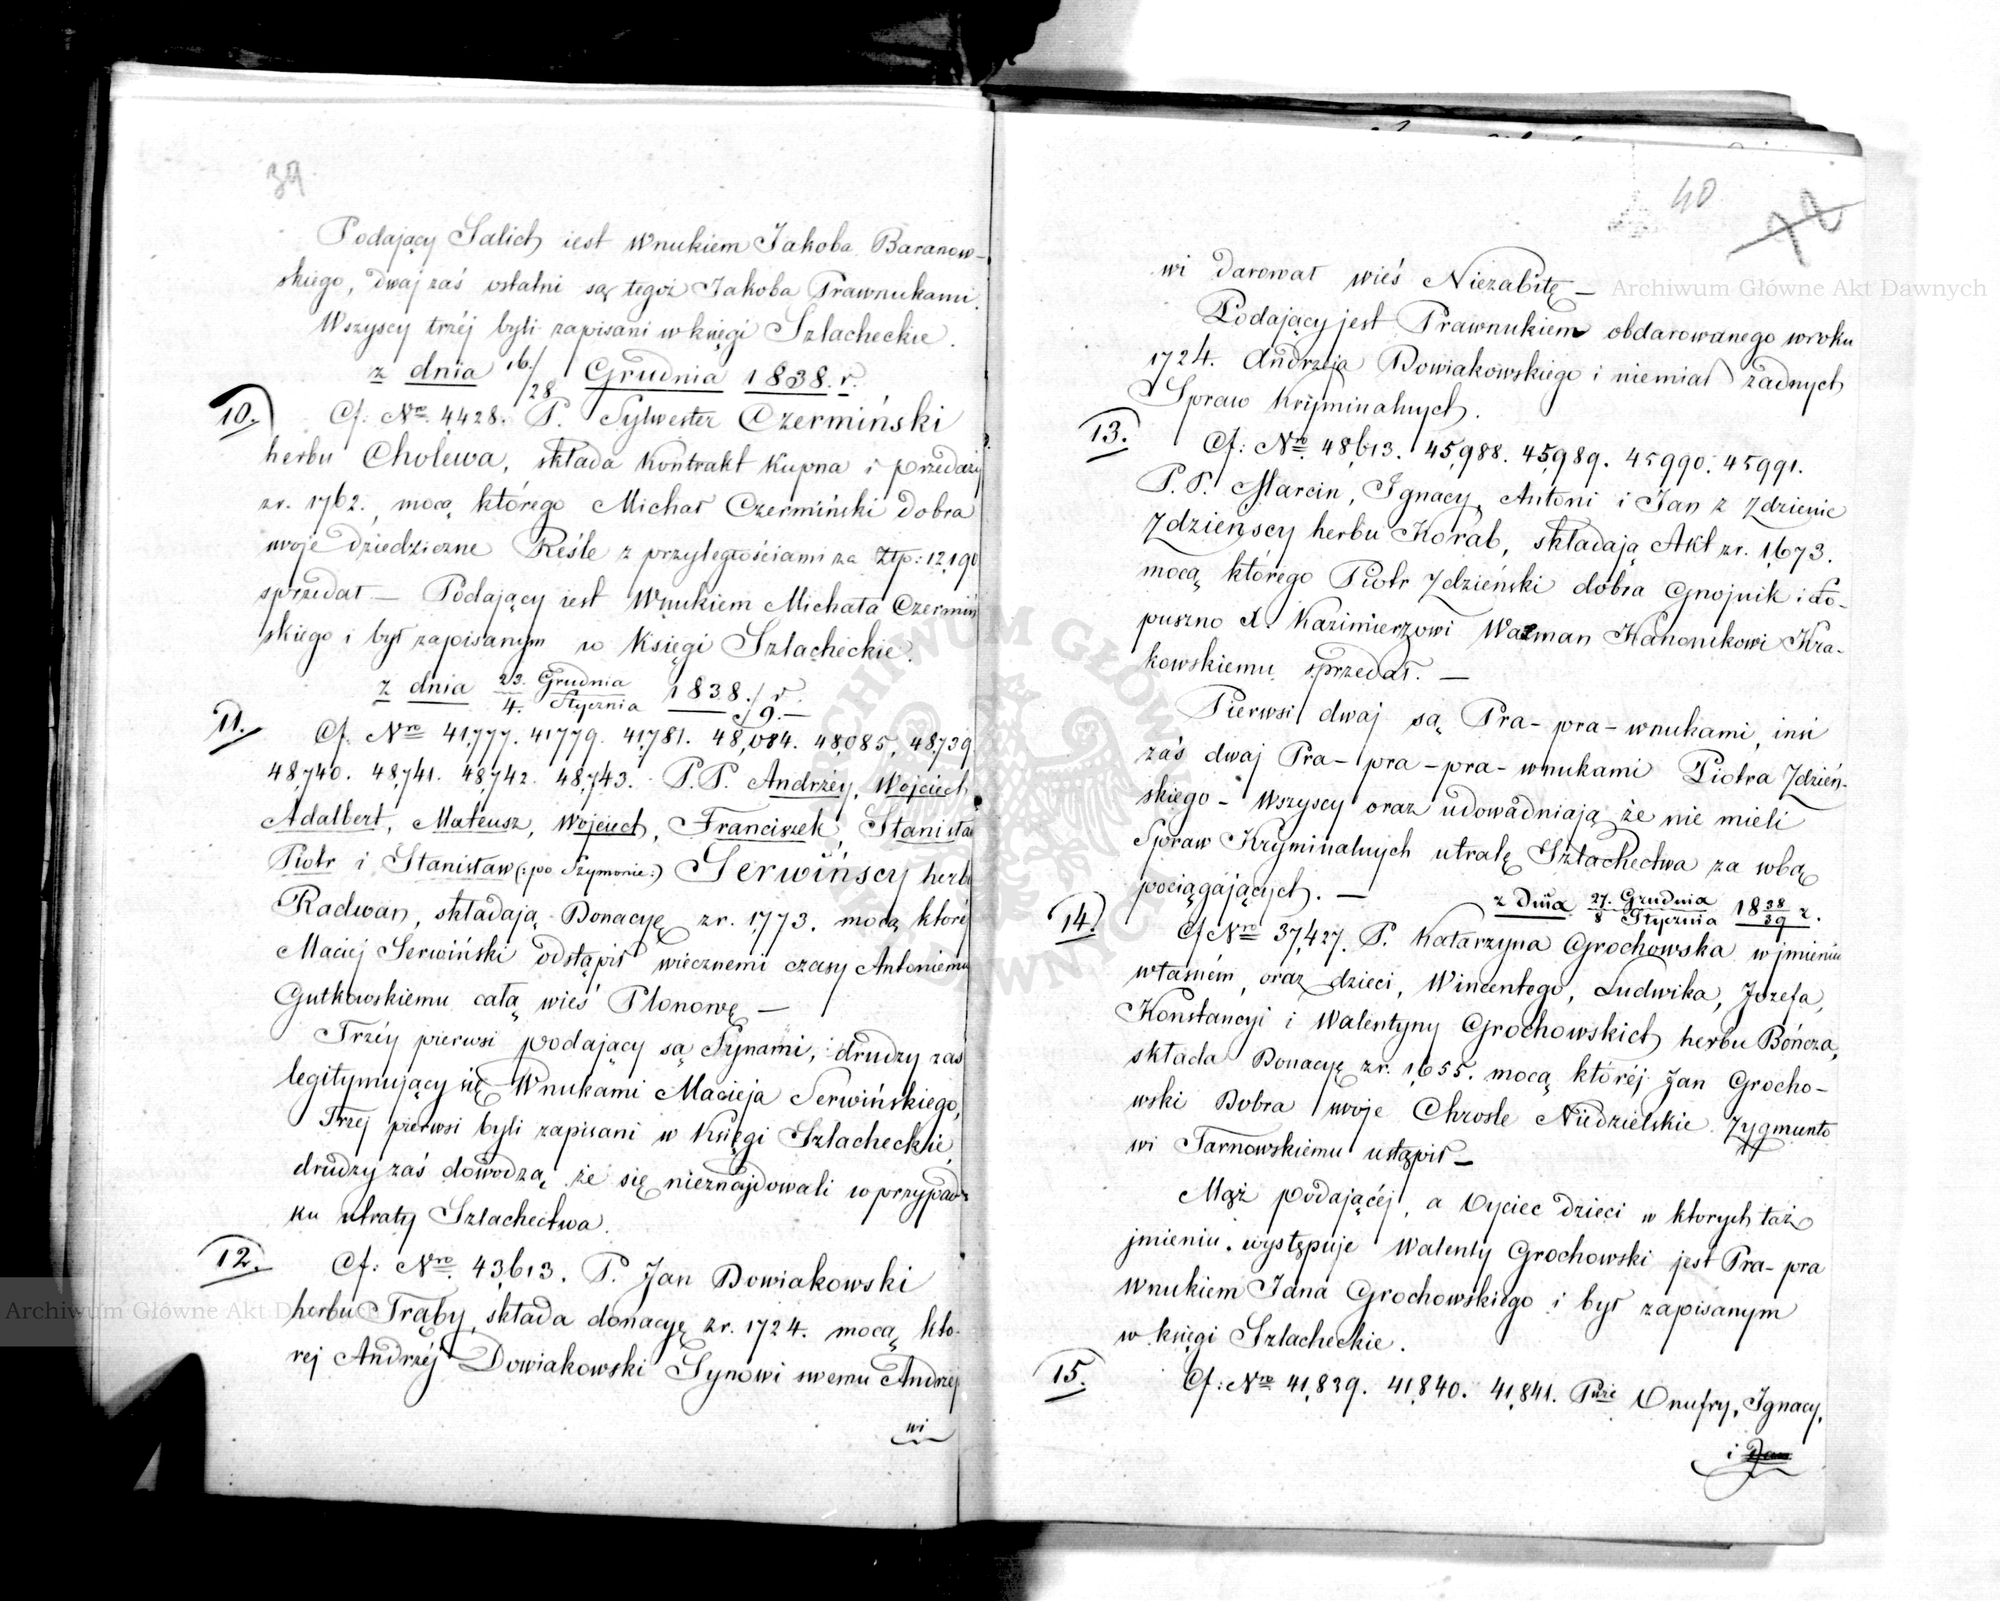 39
Podający Salich iest Wnukiem Jakoba Baranow-
skiego, dwaj zaś ostatni są tegoż Jakoba Prawnukami.
Wszyscy trzéj byli zapisani w księgi Szlacheckie.
z dnia 16/28 Grudnia 1838. r.
10. Cf: Nro 4428. P. Sylwester Czermiński
herbu Cholewa, składa Kontrakt Kupna i przedaży
z r. 1762., mocą którego Michał Czermiński dobra
swoje dziedziczne Reśle z przyległościami za Złp: 12,190
sprzedał — Podający iest Wnukiem Michała Czermiń
skiego i był zapisanym w Księgi Szlacheckie.
z dnia 23. Grudnia / 4. Stycznia 1838/9. r.
11. Cf. Nro 41,777. 41779. 41,781. 48,084. 48,085, 48,739
48,740. 48,741. 48,742. 48,743. P.P. Andrzéy, Wojciech
Adalbert, Mateusz, Wojciech, Franciszek, Stanisław
Piotr i Stanisław (:po Szymonie:) Serwińscy herbu
Radwan, składają Donacyę z r. 1,773. mocą któréj
Maciej Serwiński odstąpił wiecznemi czasy Antoniemu
Gutkowskiemu całą wieś Płonowę —
Trzéy pierwsi podający są Synami, drudzy zaś
legitymujący się Wnukami Macieja Serwińskiego,
Trzej pierwsi byli zapisani w Księgi Szlacheckie,
drudzy zaś dowodzą, że się nieznajdowali w przypad-
ku utraty Szlachectwa.
12. Cf: Nro 43,613. P. Jan Dowiakowski
herbu Trąby, składa donacyę z r. 1724. mocą któ-
rej Andrzéj Dowiakowski Synowi swemu Andrzej
wi
40
wi darował wieś Niezabitę —
Podający jest Prawnukiem obdarowanego w roku
1724. Andrzeja Dowiakowskiego i niemiał żadnych
Spraw Kryminalnych.
13. Cf: Nro 48,613. 45,988. 45,989. 45990. 45991.
P.P. Marcin, Ignacy, Antoni i Jan z Zdzienic
Zdzieńscy herbu Korab, składają Akt z r. 1,673.
mocą którego Piotr Zdzieński dobra Gnojnik i Ło-
puszno X. Kazimierzowi Wazman Kanonikowi Kra-
kowskiemu sprzedał. —
Pierwsi dwaj są Pra-pra-wnukami, inni
zaś dwaj Pra-pra-pra-wnukami Piotra Zdzień-
skiego — Wszyscy oraz udowadniają że nie mieli
Spraw Kryminalnych utratę Szlachectwa za sobą
pociągających. —
z Dnia 27. Grudnia / 8 Stycznia 1838/39 r.
14. Cf Nro 37,427. P. Katarzyna Grochowska w jmieniu
własném, oraz dzieci, Wincentego, Ludwika, Jozefa,
Konstancyi i Walentyny Grochowskich herbu Bończa,
składa Donacyę z r. 1,655. mocą któréj Jan Grocho-
wski Dobra swoje Chrosle Niedzielskie Zygmunto
wi Tarnowskiemu ustąpił —
Mąż podającéj, a Oyciec dzieci w ktorych taż
jmieniu występuje Walenty Grochowski jest Pra-pra
Wnukiem Jana Grochowskiego i był zapisanym
w księgi Szlacheckie.
15. Cf: Nro 41,839. 41,840. 41,841. Onufry, Ignacy,
i
Archiwum Główne Akt Dawnych
Archiwum Główne Akt Dawnych
ARCHIWUM GŁÓWNE AKT DAWNYCH